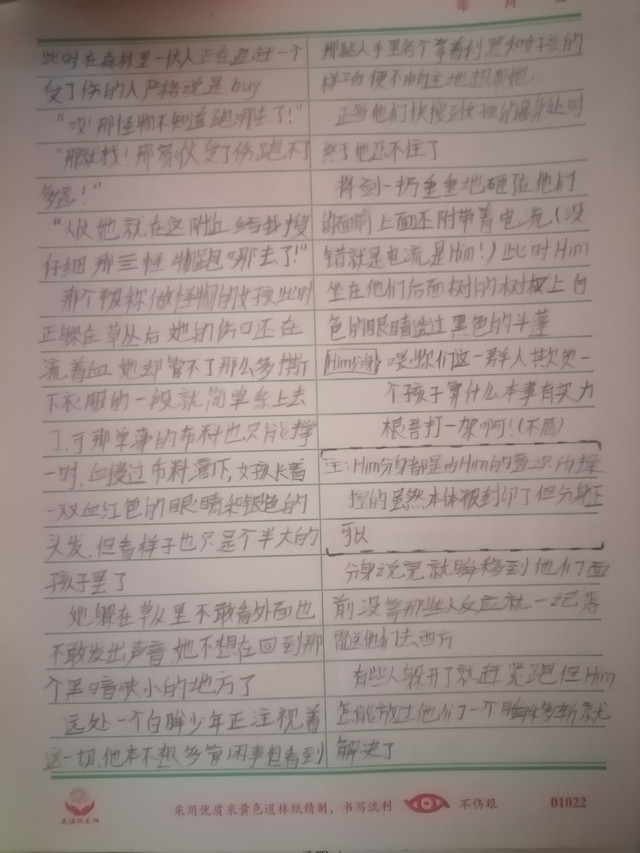 年 月
此时在森林里一伙人正在追赶一个
受了伤的人严格说是buy
“哎！那怪物不知道跑哪去了！”
“那就找！那家伙受了伤跑不了
多远！”
“从她就在这附近给我搜
仔细那三怪物跑哪去了！”
那个被称做怪物的女孩此时
正躲在草丛后她的伤口还在
流着血她却管不了那么多撕
下衣服的一段就简单系上去
了，可那单薄的布料也只能撑
一时，血侵过布料滴下，女孩长着
一双血红色的眼睛和银色的
头发，但看样子也只是个半大的
孩子罢了
她躲在草丛里不敢看外面也
不敢发出声音，她不想在回到那
个黑暗狭小的地方了
远处一个白眸少年正注视着
这一切，他本不想多管闲事但看到
那些人手里各个拿着利器和女孩的
样子便不由自主地想帮她
正当他们快搜到女孩的藏身处时
终于他忍不住了
将剑一扔重重地砸在他们
的面前上面还附带着电流（没
错就是电流是Him！）此时Him
坐在他们后面树的树杈上白
色的眼睛透过黑色的斗篷
喂你们这一群人欺负一
个孩子算什么本事有实力
跟吾打一架啊！（不屑）
注：Him分身都是由Him的意识所操
控的虽然本体被封印了但分身还
可以
分身说完就瞬移到他们面
前没等那些人反应就一记落
雷送他们去西方
有些人躲开了就赶紧跑但Him
怎能放过他们了一个瞬移斩就
解决了
采用优质米黄色道林纸精制，书写流利 不伤眼 01022